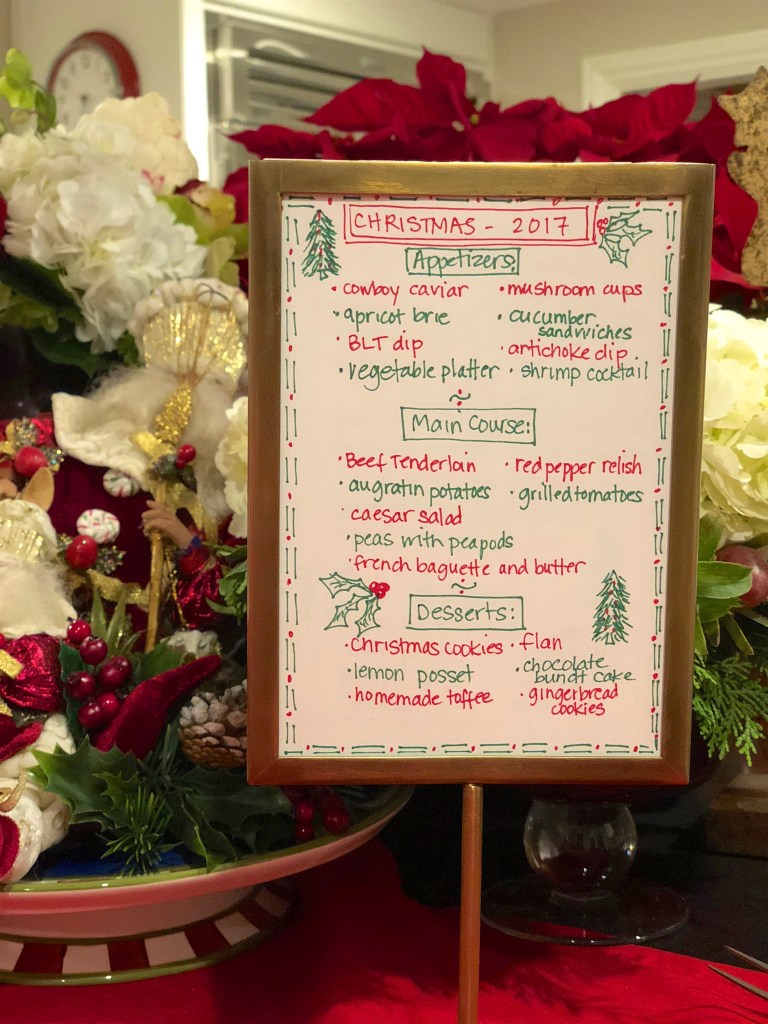 CHRISTMAS - 2017
Appetizers:
• cowboy caviar
• apricot brie
• BLT dip
• vegetable platter
• mushroom cups
• cucumber
sandwiches
• artichoke dip
• shrimp cocktail
~
Main Course:
• Beef Tenderloin
• augratin potatoes
• caesar salad
• peas with peapods
• french baguette and butter
• red pepper relish
• grilled tomatoes
~
Desserts:
• Christmas cookies
• lemon posset
• homemade toffee
• flan
• chocolate
bundt cake
• gingerbread
cookies